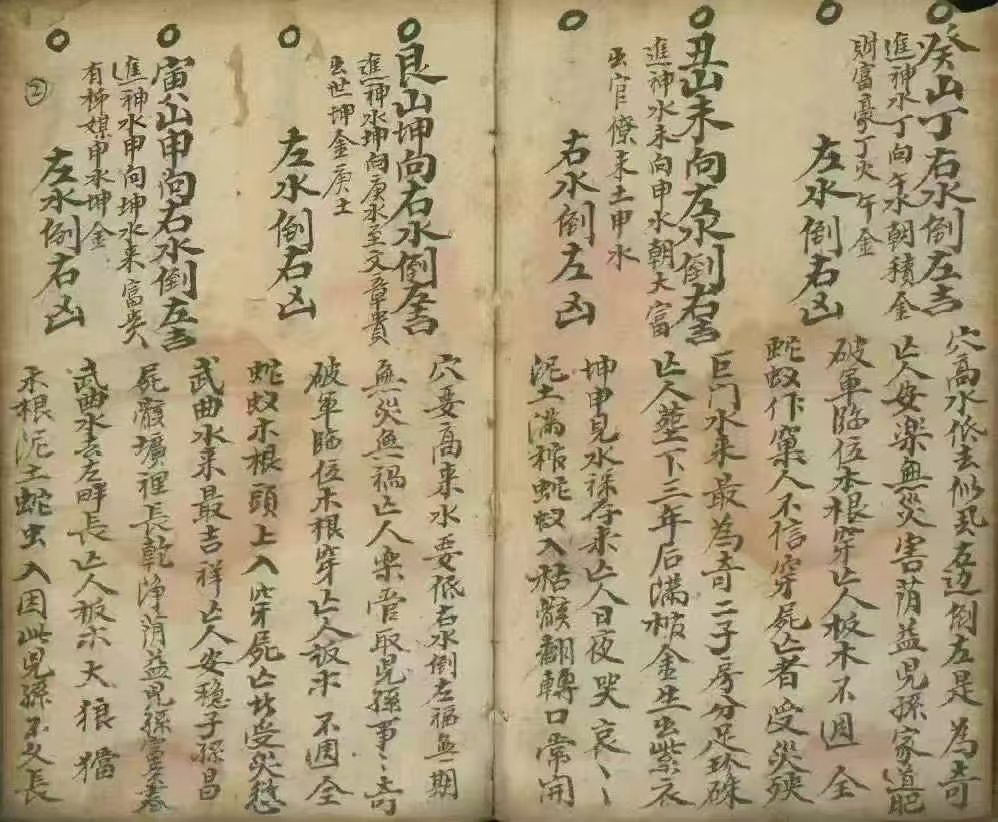 癸山丁右水倒左吉
進神水丁向午水朝積金
財富豪丁火午金
穴高水低去似玄右边倒左是為奇
亡人安楽無災害荫益児孫家道肥
左水倒右凶
破軍臨位木根穿亡人板木不週全
蛇蚁作窠人不信穿屍亡者受災殃
丑山未向左水倒右吉
進神水未向申水朝大富
出官僚未土申水
巨门水来最為奇二子房分足珍珠
亡人塟下三年后满棺金生出紫衣
右水倒左凶
坤申見水禄存来亡人日夜哭哀哀
泥土满棺蛇蚁入骷髏翻轉口常開
艮山坤向右水倒左吉
進神水坤向庚水至文章貴
出世坤金庚土
穴要高来水要低右水倒左福無期
無災無禍亡人楽管取児孫事事奇
左水倒右凶
破軍臨位木根穿亡人板木不週全
蛇蚁木根頭上入穿屍亡者受災愆
寅山申向右水倒左吉
進神水申向坤水来富贵人
有棉媒申水坤金
武曲水来最吉祥亡人安穏子孫昌
屍骸壙裡長乾净荫益児孫富寿
左水倒右凶
武曲水去左畔長亡人板木大狼犺
木根泥土蛇虫入因此児孫不久長
②